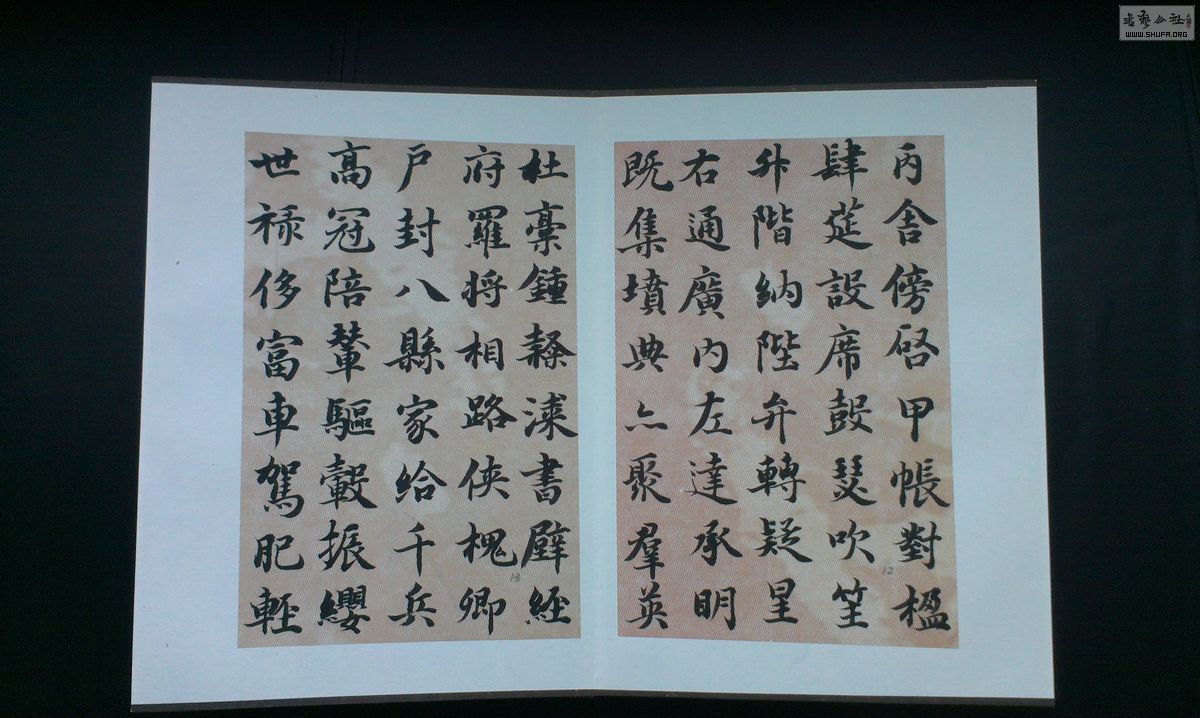 丙舍傍啓甲帳對楹
肆筵設席鼓瑟吹笙
升階納陛弁轉疑星
右通廣內左達承明
既集墳典亦聚羣英
12
杜稾鍾隸漆書壁經
府羅將相路俠槐卿
戶封八縣家給千兵
高冠陪輦驅轂振纓
世祿侈富車駕肥輕
13
書藝公社
WWW.SHUFA.ORG